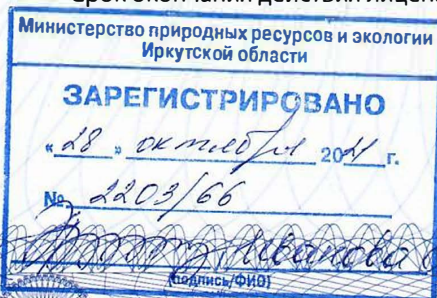 Срок окончания действия
Министерство природных ресурсов и экологии
Иркутской области
ЗАРЕГИСТРИРОВАНО
«28» октября 2021 г.
№ 2203/66
Иванова
(подпись/ФИО)